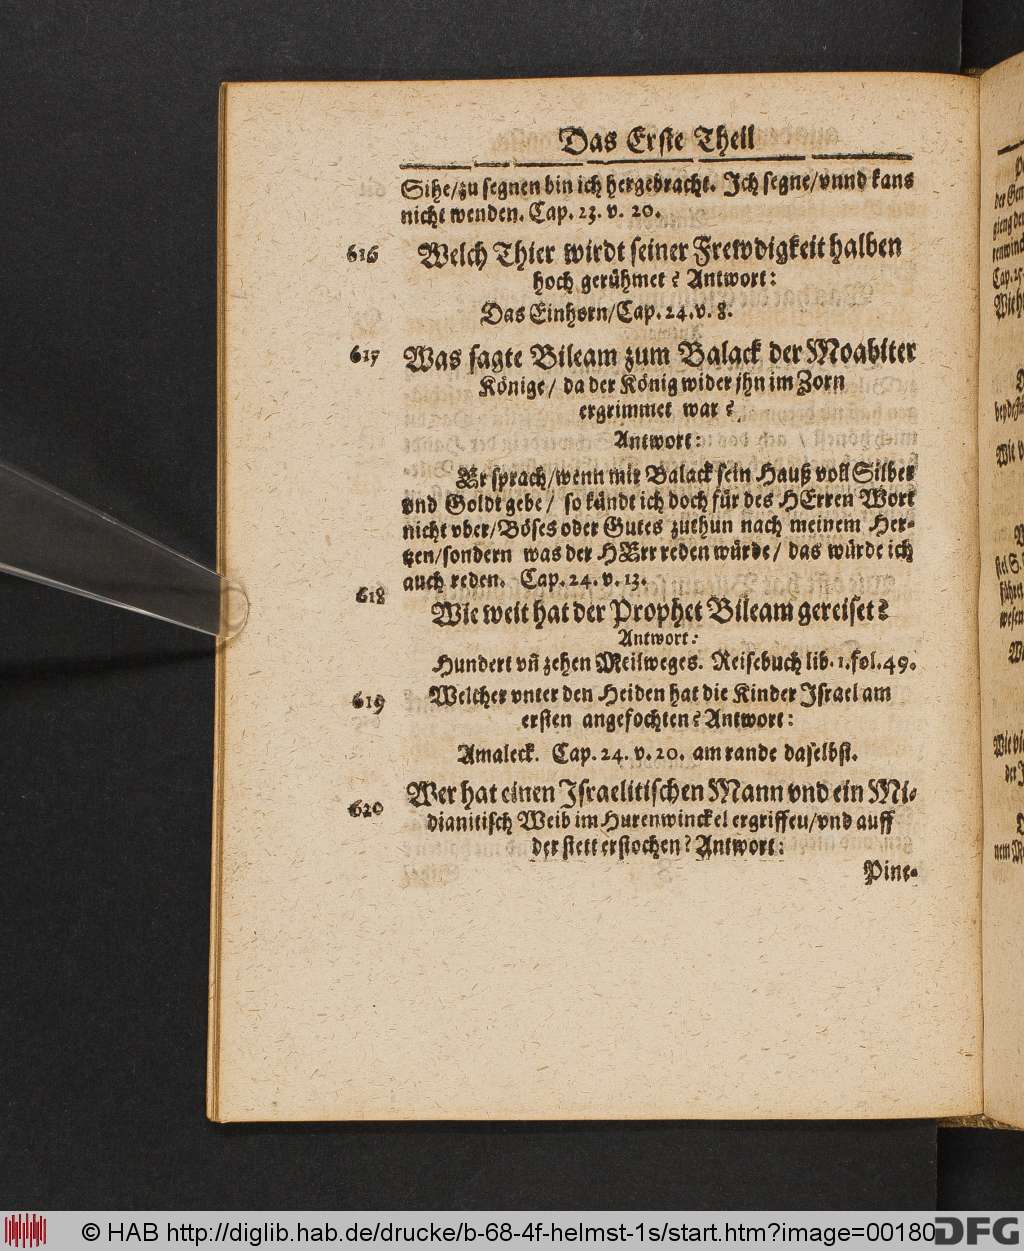 Das Erste Theil
Sihe/zu segnen bin ich hergebracht. Ich segne/vnnd kans
nicht wenden. Cap. 23. v. 20.
616 Welch Thier wirdt seiner Frewdigkeit halben
hoch gerühmet? Antwort:
Das Einhorn/Cap. 24. v. 8.
617 Was sagte Bileam zum Balack der Moabiter
Könige/ da der König wider jhn im Zorn
ergrimmet war?
Antwort:
Er sprach/wenn mir Balack sein Hauß voll Silber
vnd Goldt gebe/ so kündt ich doch für des HErren Wort
nicht vber/Böses oder Gutes zuthun nach meinem Her-
tzen/sondern was der HErr reden würde/ das würde ich
auch reden. Cap. 24. v. 13.
618 Wie weit hat der Prophet Bileam gereiset?
Antwort:
Hundert vñ zehen Meilweges. Reisebuch lib. 1. fol. 49.
619 Welcher vnter den Heiden hat die Kinder Israel am
ersten angefochten? Antwort:
Amaleck. Cap. 24. v. 20. am rande daselbst.
620 Wer hat einen Israelitischen Mann vnd ein Mi-
dianitisch Weib im Hurenwinckel ergriffeu/vnd auff
der stett erstochen? Antwort:
Pine-
© HAB http://diglib.hab.de/drucke/b-68-4f-helmst-1s/start.htm?image=00180
DFG